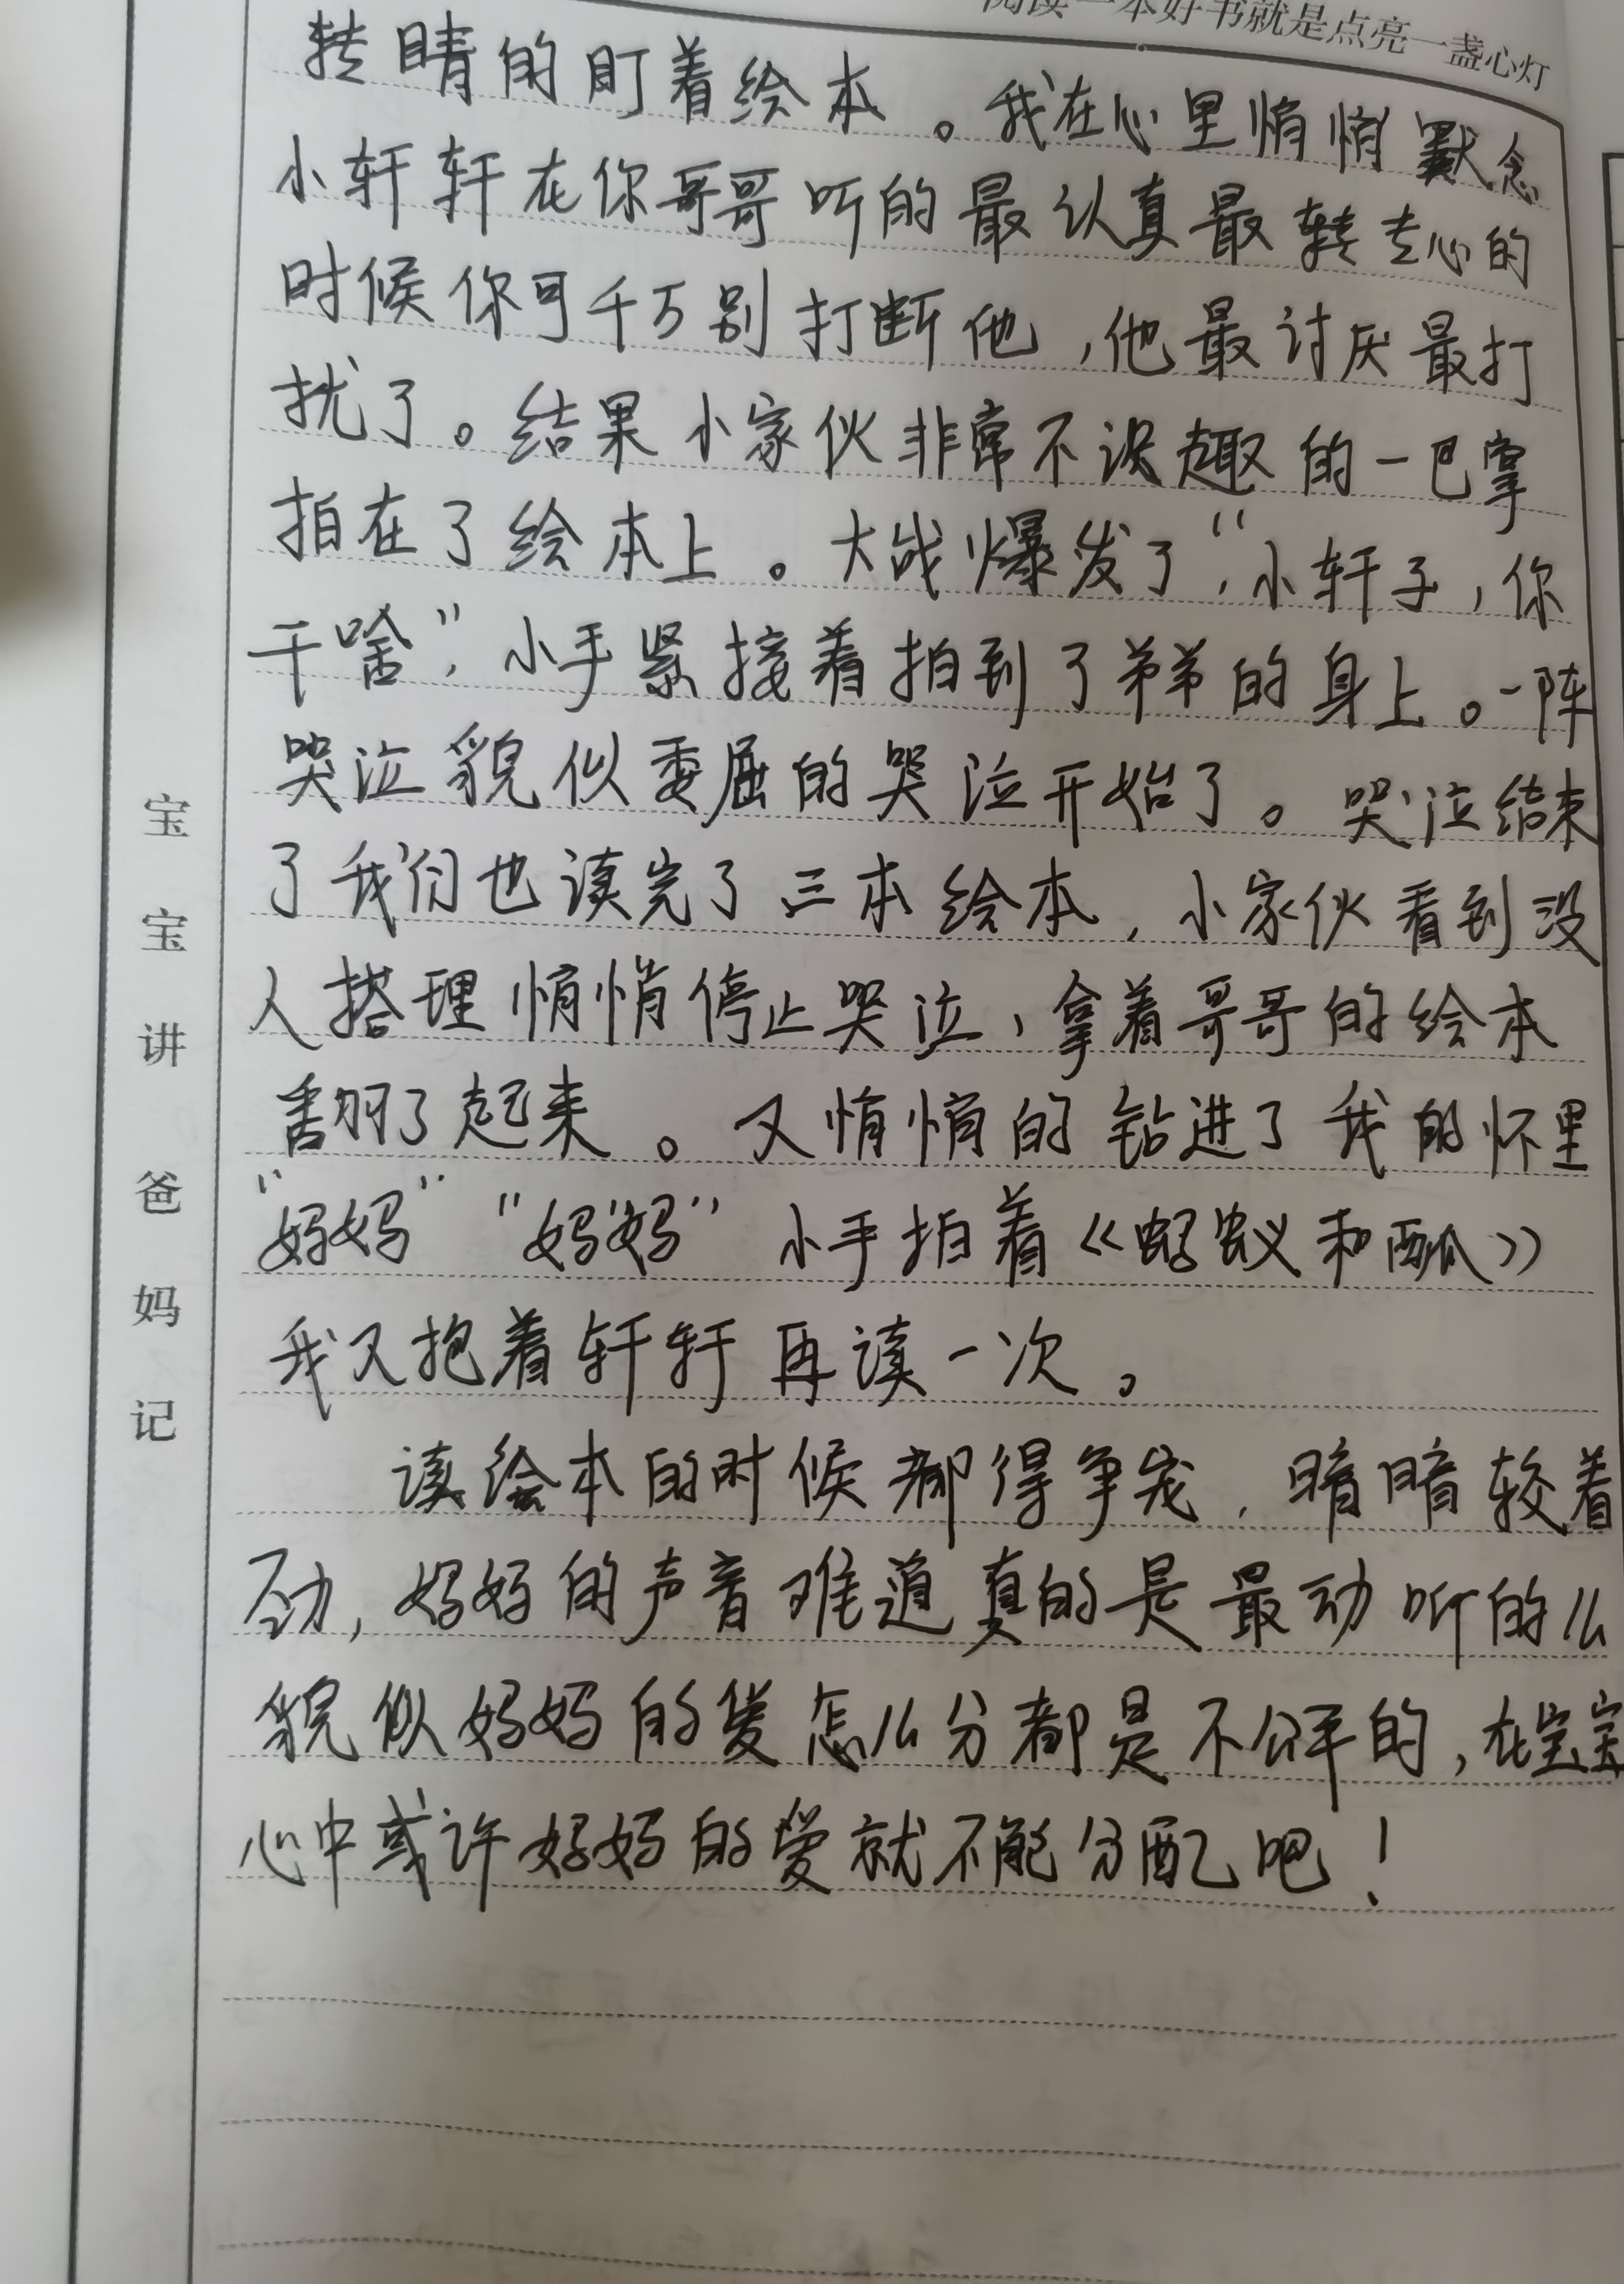 阅读一本好书就是点亮一盏心灯
转睛的盯着绘本。我在心里悄悄默念
小轩轩在你哥哥听的最认真最转专心的
时候你可千万别打断他，他最讨厌最打
扰了。结果小家伙非常不识趣的一巴掌
拍在了绘本上。大战爆发了，“小轩子，你
干啥”，小手紧接着拍到了弟弟的身上。一阵
哭泣貌似委屈的哭泣开始了。哭泣结束
了我们也读完了三本绘本，小家伙看到没
人搭理悄悄停止哭泣，拿着哥哥的绘本
翻了起来。又悄悄的钻进了我的怀里
“妈妈”“妈妈”小手拍着《蚂蚁和西瓜》
我又抱着轩轩再读一次。
读绘本的时候都得争宠，暗暗较着
劲，妈妈的声音难道真的是最动听的么
貌似妈妈的爱怎么分都是不公平的，在宝宝
心中或许妈妈的爱就不能分配吧！
宝宝讲 爸妈记